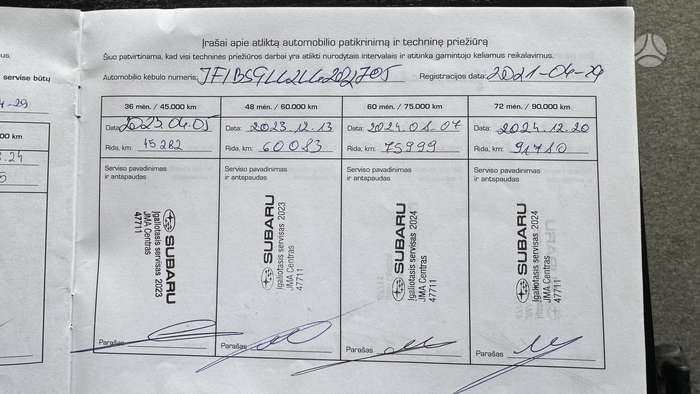 Įrašai apie atliktą automobilio patikrinimą ir techninę priežiūrą
Šiuo patvirtinama, kad visi techninės priežiūros darbai yra atlikti nurodytais intervalais ir atitinka gamintojo keliamus reikalavimus.
Automobilio kėbulo numeris: Registracijos data: 2021-04-29
servise būtų
-29
36 mėn. / 45.000 km 48 mėn. / 60.000 km 60 mėn. / 75.000 km 72 mėn. / 90.000 km
Data: 2023.04.05 Data: 2023.12.13 Data: 2024.08.07 Data: 2024.12.20
Rida, km: 45282 Rida, km: 60083 Rida, km: 75999 Rida, km: 91710
00 km
.24
5
Serviso pavadinimas Serviso pavadinimas Serviso pavadinimas Serviso pavadinimas
ir antspaudas ir antspaudas ir antspaudas ir antspaudas
SUBARU
Įgaliotasis servisas 2023
JMA Centras
47711
SUBARU
Įgaliotasis servisas 2023
JMA Centras
47711
SUBARU
Įgaliotasis servisas 2024
JMA Centras
47711
SUBARU
Įgaliotasis servisas 2024
JMA Centras
47711
Parašas Parašas Parašas Parašas